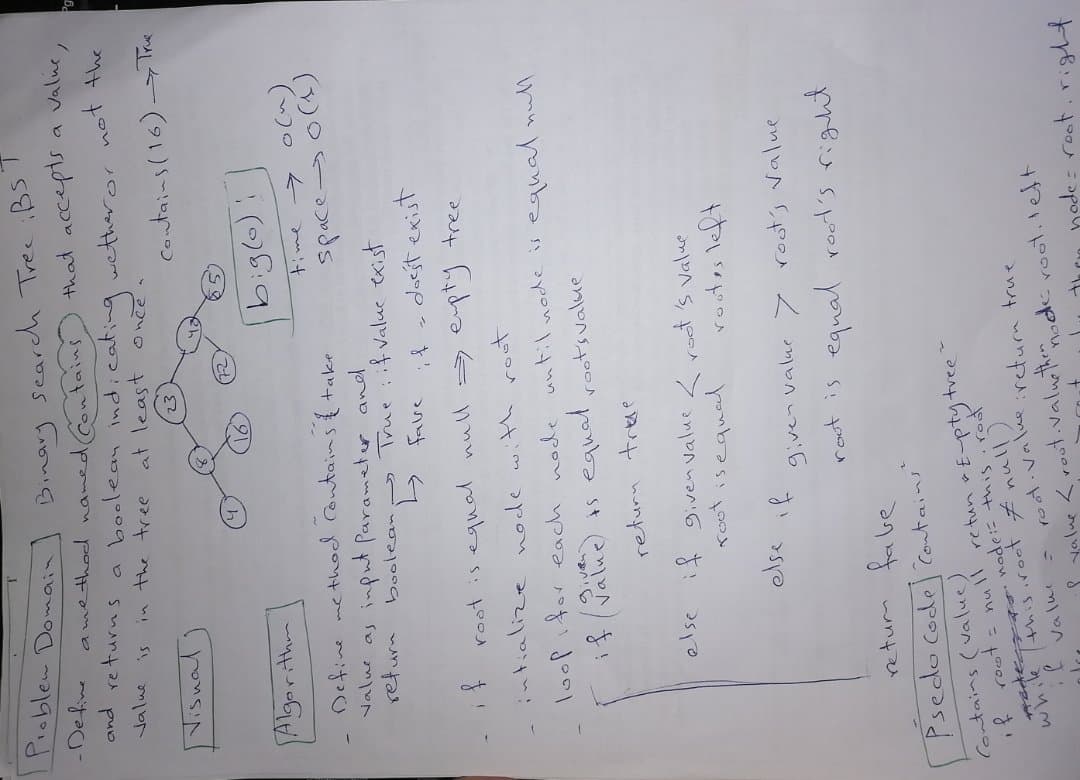 Problem Domain Binary search Tree :BST
- Define a method named Contains that accepts a value,
and returns a boolean indicating wether or not the
value is in the tree at least once.
Visual
contains(16) → True
23
8
42
4
16
big(o):
Algorithm
time → O(n)
space → O(h)
- Define method "Contains" & take
value as input Parameter and
return boolean → True : if value exist
↳ false : if = does't exist
- if root is equal null ⇒ empty tree
- intialize node with root
- loop : for each node until node is equal null
if (given value) is equal root's value
return true
else if given value < root's value
root is equal root's left
else if given value > root's value
root is equal root's right
return false
Psedo Code "Contains"
Contains (value)
if root = null return "Empty tree"
node := this.root
while (this.root ≠ null)
if value = root.value :return true
if value < root.value then node: root.left
value then node= root.right